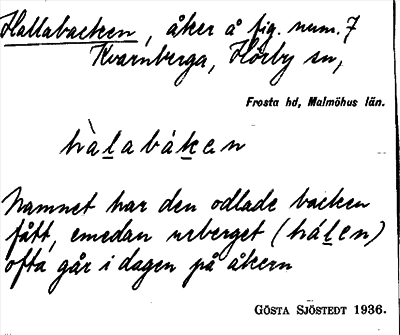 Hallabacken, åker å fig. num. 7
Kvarnberga, Hörby sn,
Frosta hd, Malmöhus län.
hàlabáken
Namnet har den odlade backen
fått, emedan urberget (hálen)
ofta går i dagen på åkern
GÖSTA SJÖSTEDT 1936.